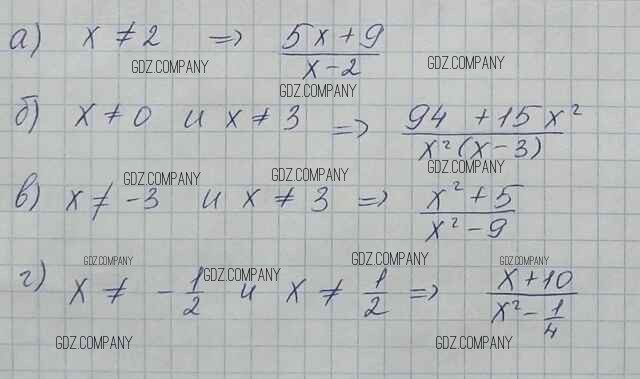 а) x ≠ 2 => (5x + 9)/(x - 2)
GDZ.COMPANY GDZ.COMPANY
GDZ.COMPANY
б) x ≠ 0 и x ≠ 3 => (94 + 15x²)/(x²(x - 3))
GDZ.COMPANY GDZ.COMPANY GDZ.COMPANY
в) x ≠ -3 и x ≠ 3 => (x² + 5)/(x² - 9)
GDZ.COMPANY GDZ.COMPANY GDZ.COMPANY GDZ.COMPANY
г) x ≠ -1/2 и x ≠ 1/2 => (x + 10)/(x² - 1/4)
GDZ.COMPANY GDZ.COMPANY